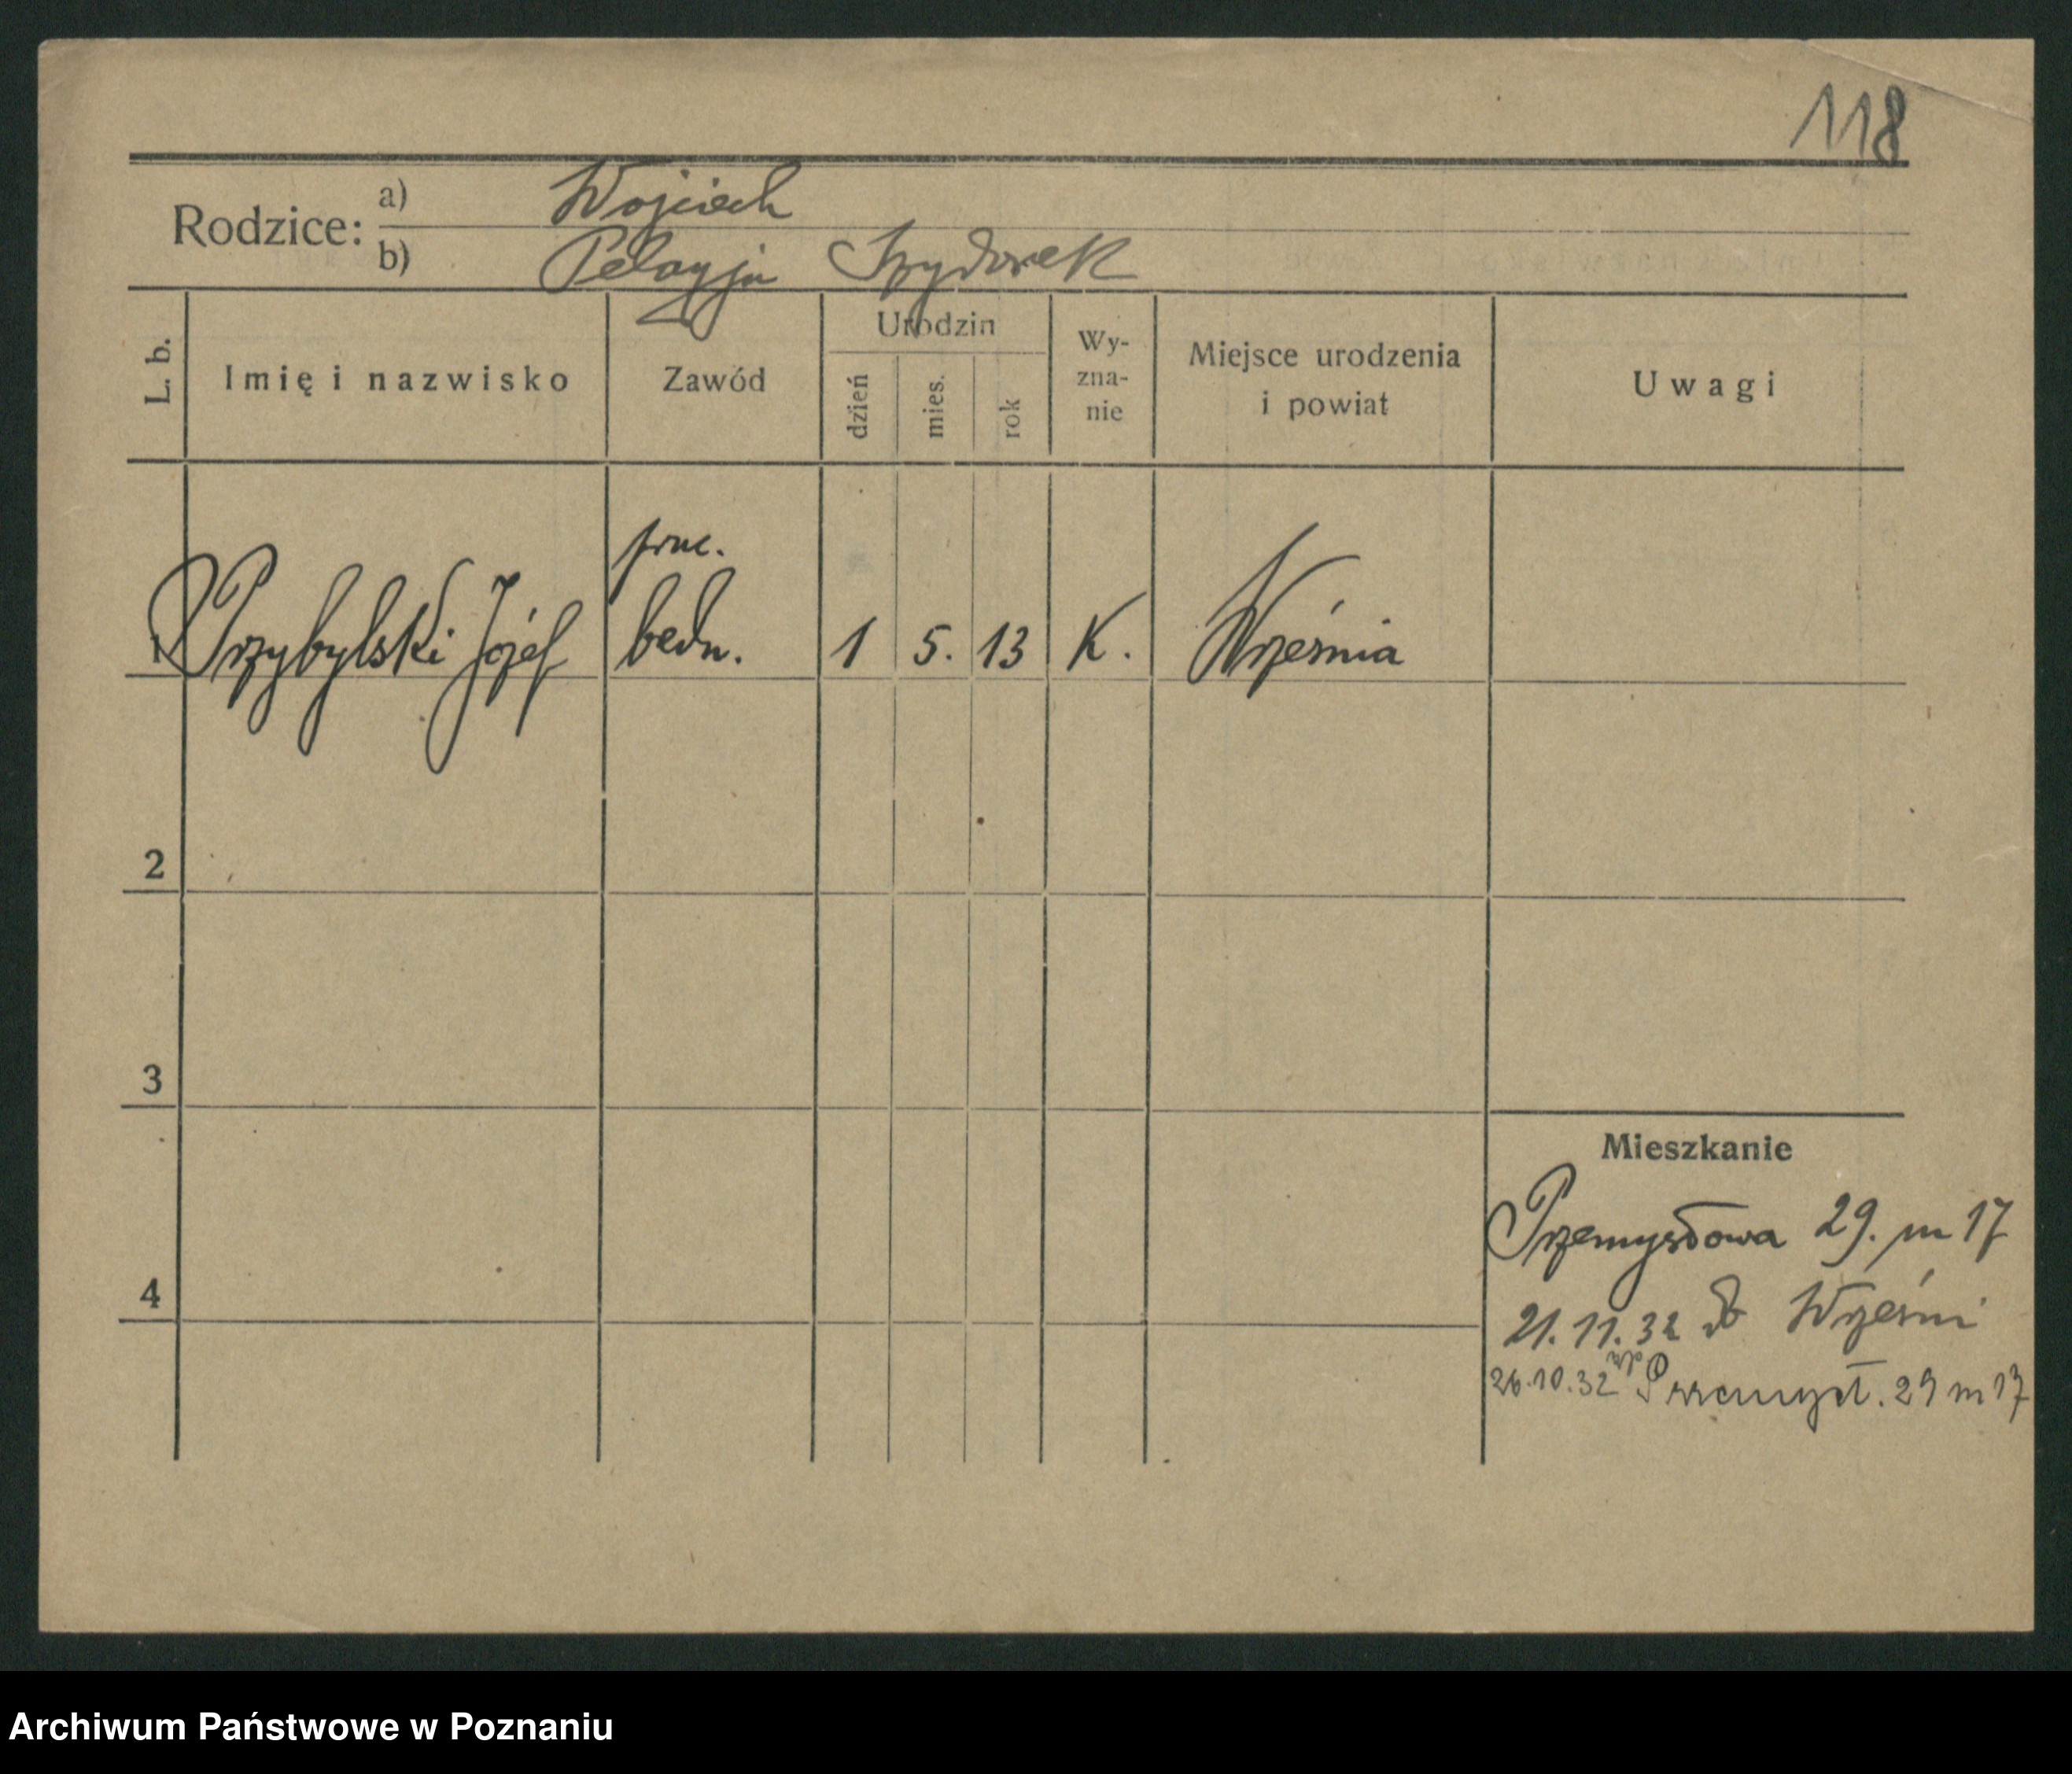 118
Rodzice: a) Wojciech
b) Pelagja Szydorek
L. b. Imię i nazwisko Zawód Urodzin dzień mies. rok Wy-zna-nie Miejsce urodzenia i powiat Uwagi
prac.
1 Przybylski Józef bedn. 1 5. 13 K. Września
2
3
Mieszkanie
Przemysłowa 29. m 17
4
21.11.32 do Wrześni
26.10.32 Przemysł. 29 m 17
Archiwum Państwowe w Poznaniu